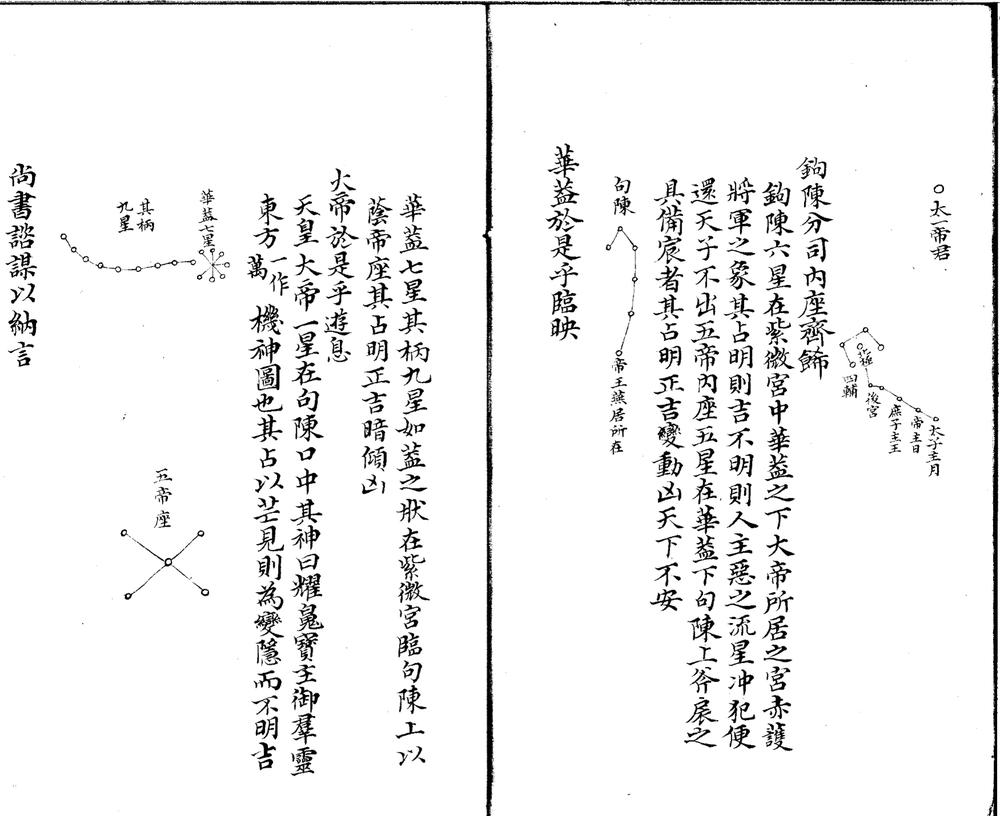 太一帝君
北極
四輔
後宮
庶子主王
帝主日
太子主月
鉤陳分司內座齊飾
鉤陳六星在紫微宮中華蓋之下大帝所居之宮亦護
將軍之象其占明則吉不明則人主惡之流星冲犯便
還天子不出五帝內座五星在華蓋下句陳上斧扆之
具備宸者其占明正吉變動凶天下不安
句陳
帝王燕居所在
華蓋於是乎臨映
華蓋七星其柄九星如蓋之狀在紫微宮臨句陳上以
蔭帝座其占明正吉暗傾凶
大帝於是乎遊息
天皇大帝一星在句陳口中其神曰耀鬼寶主御羣靈
東方一作萬機神圖也其占以芒見則為變隱而不明吉
華蓋七星
其柄
九星
五帝座
尚書諮謀以納言